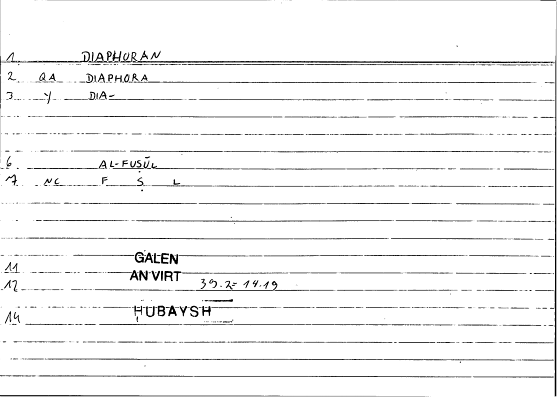 1 DIAPHURAN
2 QA DIAPHORA
3 Y DIA-
6 AL-FUṢŪL
7 NC F Ṣ L
11 GALEN
12 AN VIRT 39.2= 14.19
14 HUBAYSH